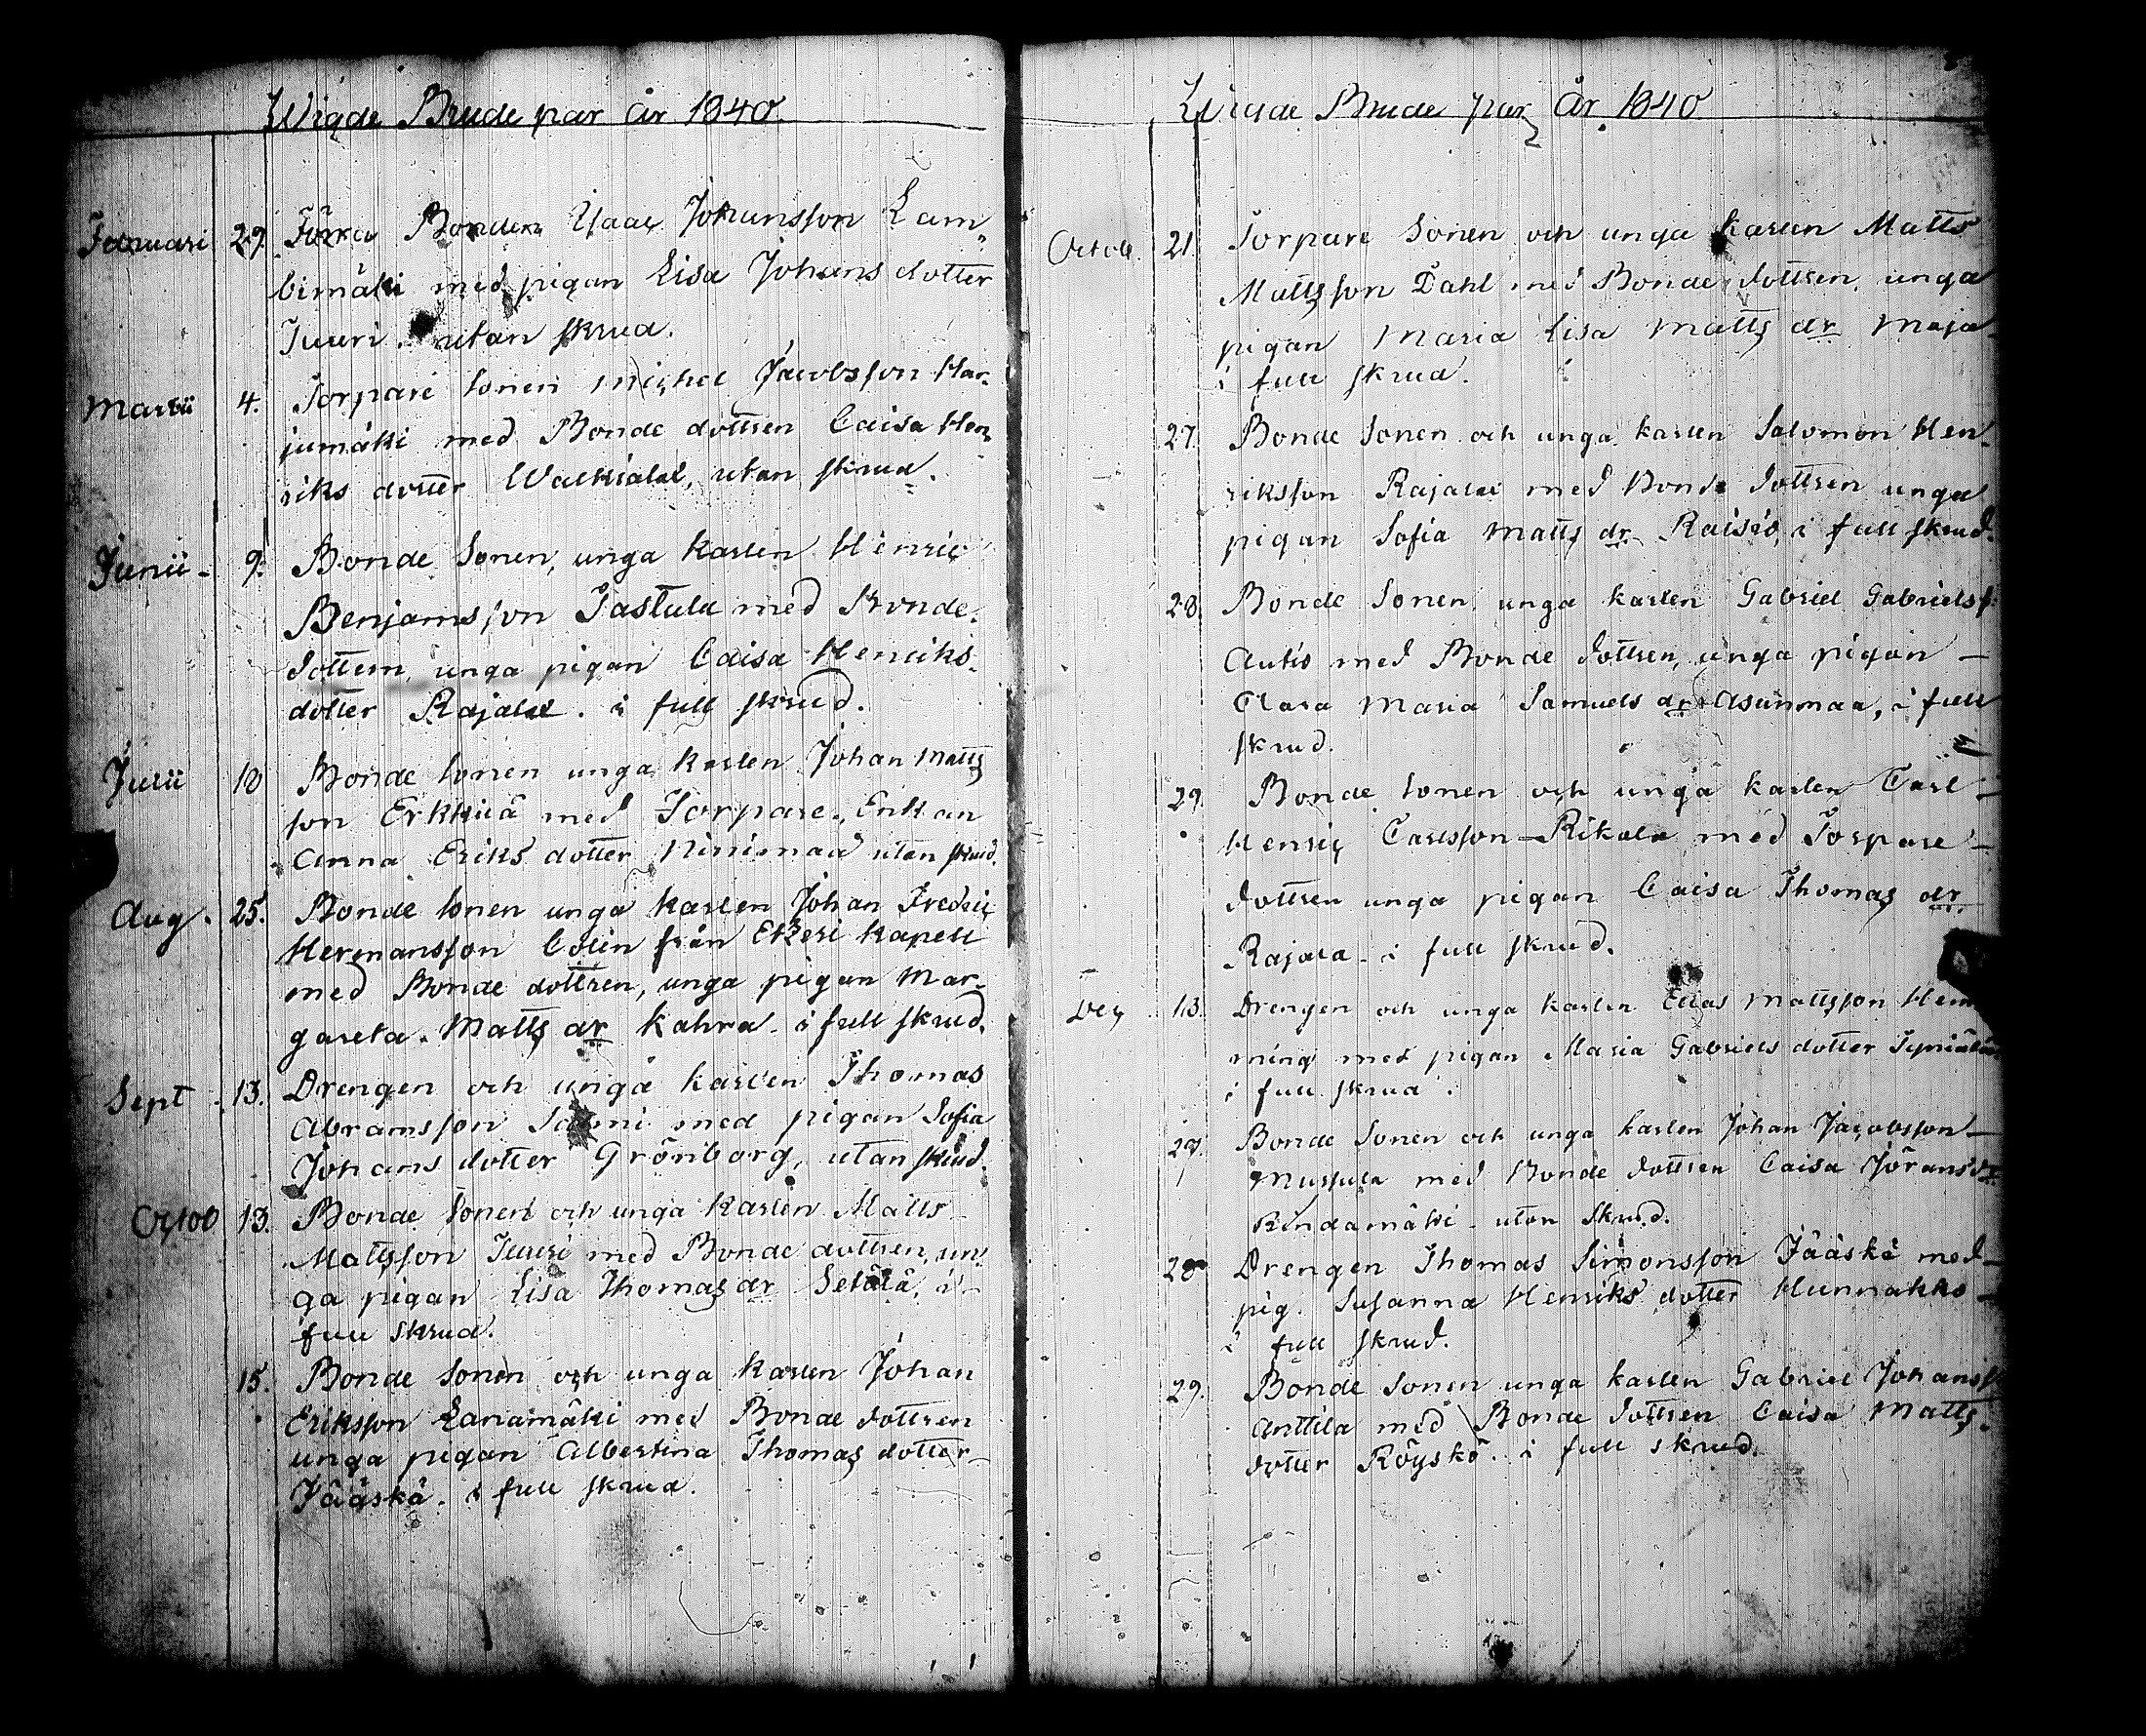 Wigde Brude par år 1840.
Januari 29. Förra Bonden Isaac Johansson Lam„
bimäki med pigan Lisa Johans dotter
Juuri. utan skrud.
Martii 4. Torpare sonen Michel Jacobsson Har„
jumäki med Bonde dottren Caisa Hen„
riks dotter Walkiala, utan skrud.
Junii 9. Bonde Sonen, unga karlen Henric
Benjamsson Tastula med Bonde„
dottern, unga pigan Caisa Henriks„
dotter Rajala. i full skrud.
Julii 10 Bonde sonen unga karlen Johan Matts
son Erkkilä med Torpare Enkan
Anna Eriks dotter Niinimaa utan skrud.
Aug. 25. Bonde sonen unga karlen Johan Fredric
Hermansson Colin från Etzeri kapell
med Bonde dottren, unga pigan Mar„
gareta Matts dr Kahra. i full skrud.
Sept. 13. Drengen och unga karlen Thomas
Abramsson Salmi med pigan Sofia
Johans dotter Grönborg, utan skrud.
Octob 13. Bonde Sonen och unga karlen Matts
Mattsson Juuri med Bonde dottren, un„
ga pigan Lisa Thomas dr Setälä, i
full skrud.
15. Bonde sonen och unga karlen Johan
Eriksson Lanamäki med Bonde dottren
unga pigan Albertina Thomas dotter
Jääskä. i full skrud.
Wigde Brude par År 1840.
Octob. 21. Torpare Sonen och unga karlen Matts
Mattsson Dahl med Bonde dottren unga
pigan Maria Lisa Matts dr Maja
i full skrud.
27. Bonde Sonen och unga karlen Salomon Hen„
riksson Rajala med Bonde dottren unga
pigan Sofia Matts dr Raisio, i full skrud.
28. Bonde Sonen unga karlen Gabriel Gabriels s:
Autio med Bonde dottren, unga pigan
Clara Maria Samuels dr Asunmaa, i full
skrud.
29. Bonde sonen och unga karlen Carl
Henric Carlsson Rikala med Torpare
dottren unga pigan Caisa Thomas dr
Rajala i full skrud.
Dec 13. Drengen och unga karlen Elias Mattsson Hem
ming med pigan Maria Gabriels dotter
i full skrud.
27. Bonde Sonen och unga karlen Johan Jacobsson
Mustula med Bonde dottren Caisa Jörans dr
Rindamäki utan skrud.
28 Drengen Thomas Simonsson Jääskä med
pig. Susanna Henriks dotter Hunnakko
i full skrud.
29. Bonde Sonen unga karlen Gabriel Johanss
Anttila med Bonde dottren Caisa Matts
dotter Röyskö. i full skrud.